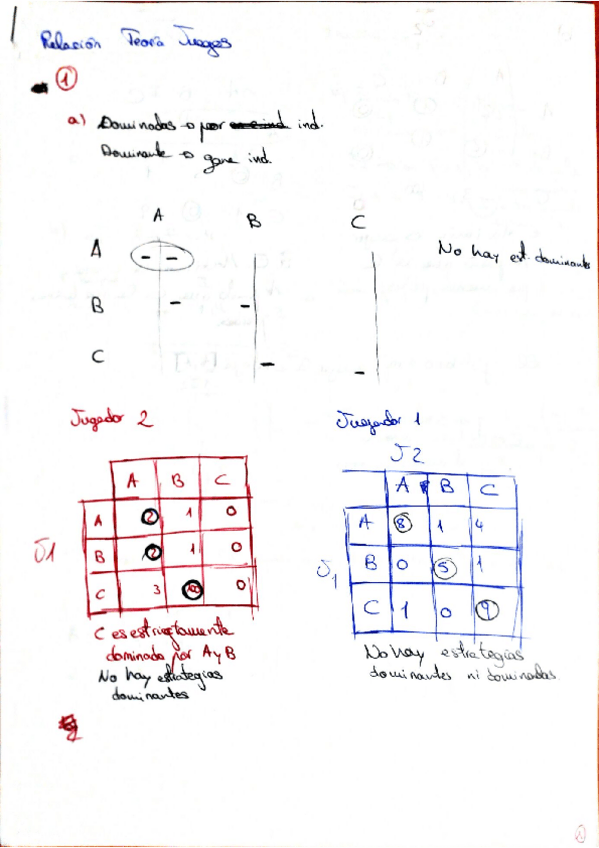 Relación Teoría Juegos
①
a) Dominadas → por ind.
Dominante → gane ind.
A B C
A - -
B - -
C - -
No hay est. dominantes
Jugador 2
A B C
A 2 1 0
J1 B 2 1 0
C 3 0
C es estrictamente
dominada por A y B
No hay estrategias
dominantes
Juegador 1
J2
A B C
A 8 1 4
J1 B 0 5 1
C 1 0 9
No hay estrategias
dominantes ni dominadas